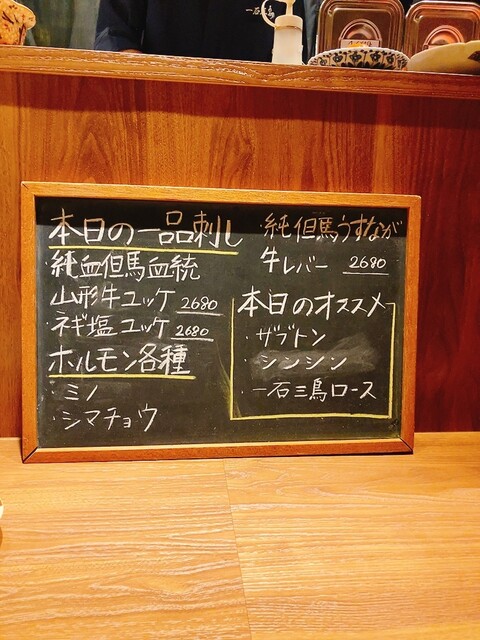 本日の一品刺し
純血但馬血統
山形牛ユッケ 2680
ネギ塩ユッケ 2680
ホルモン各種
・ミノ
・シマチョウ
・純但馬うすなが
牛レバー 2680
本日のオススメ
・ザブトン
・シンシン
・一石三鳥ロース
一石三鳥